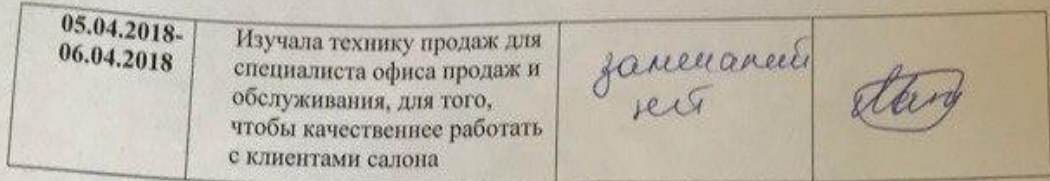 05.04.2018-
06.04.2018
Изучала технику продаж для
специалиста офиса продаж и
обслуживания, для того,
чтобы качественнее работать
с клиентами салона
замечаний
нет